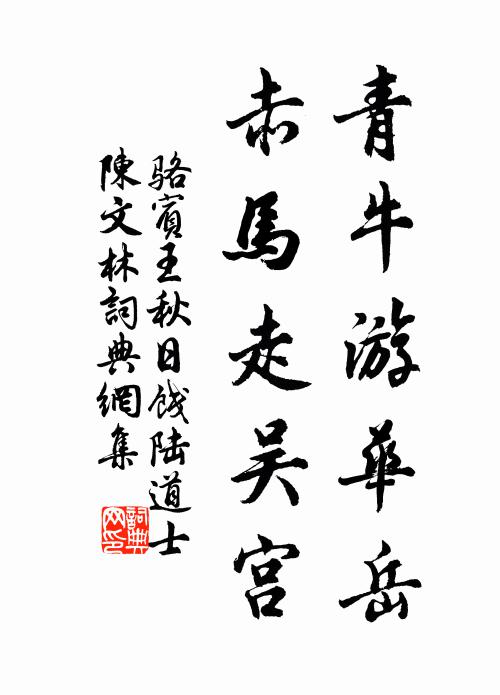 青牛游華岳
赤馬走吴宮
骆賓王秋日餞陆道士
陳文林詞典網集
詞典
网印